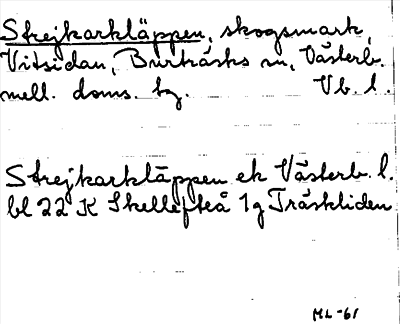 Strejkarkläppen, skogsmark,
Vitsidan, Burträsks sn, Västerb.
mell. doms. tg. Vb. l.
Strejkarkläppen ek Västerb. l.
bl 22 K Skellefteå 1g Träskliden
ML-61